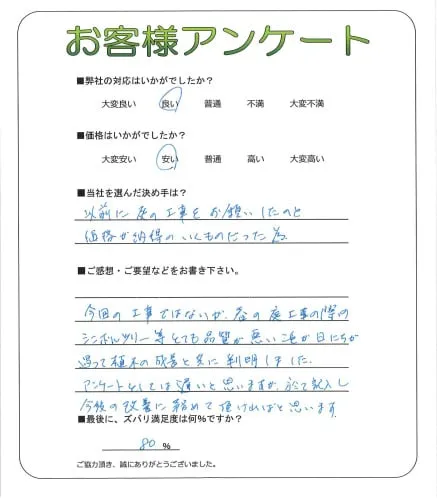 お客様アンケート
■弊社の対応はいかがでしたか？
大変良い 良い 普通 不満 大変不満
■価格はいかがでしたか？
大変安い 安い 普通 高い 大変高い
■当社を選んだ決め手は？
以前に庭の工事をお願いしたのと
価格が納得のいくものだった為
■ご感想・ご要望などをお書き下さい。
今回の工事ではないが、春の庭工事の際の
シンボルツリー等とても品質が悪い事が日にちが
過って植木の成長と共に判明しました.
アンケートとしては遅いと思いますが、記入し
今後の改善に努めて頂ければと思います.
■最後に、ズバリ満足度は何％ですか？
80 %
ご協力頂き、誠にありがとうございました。